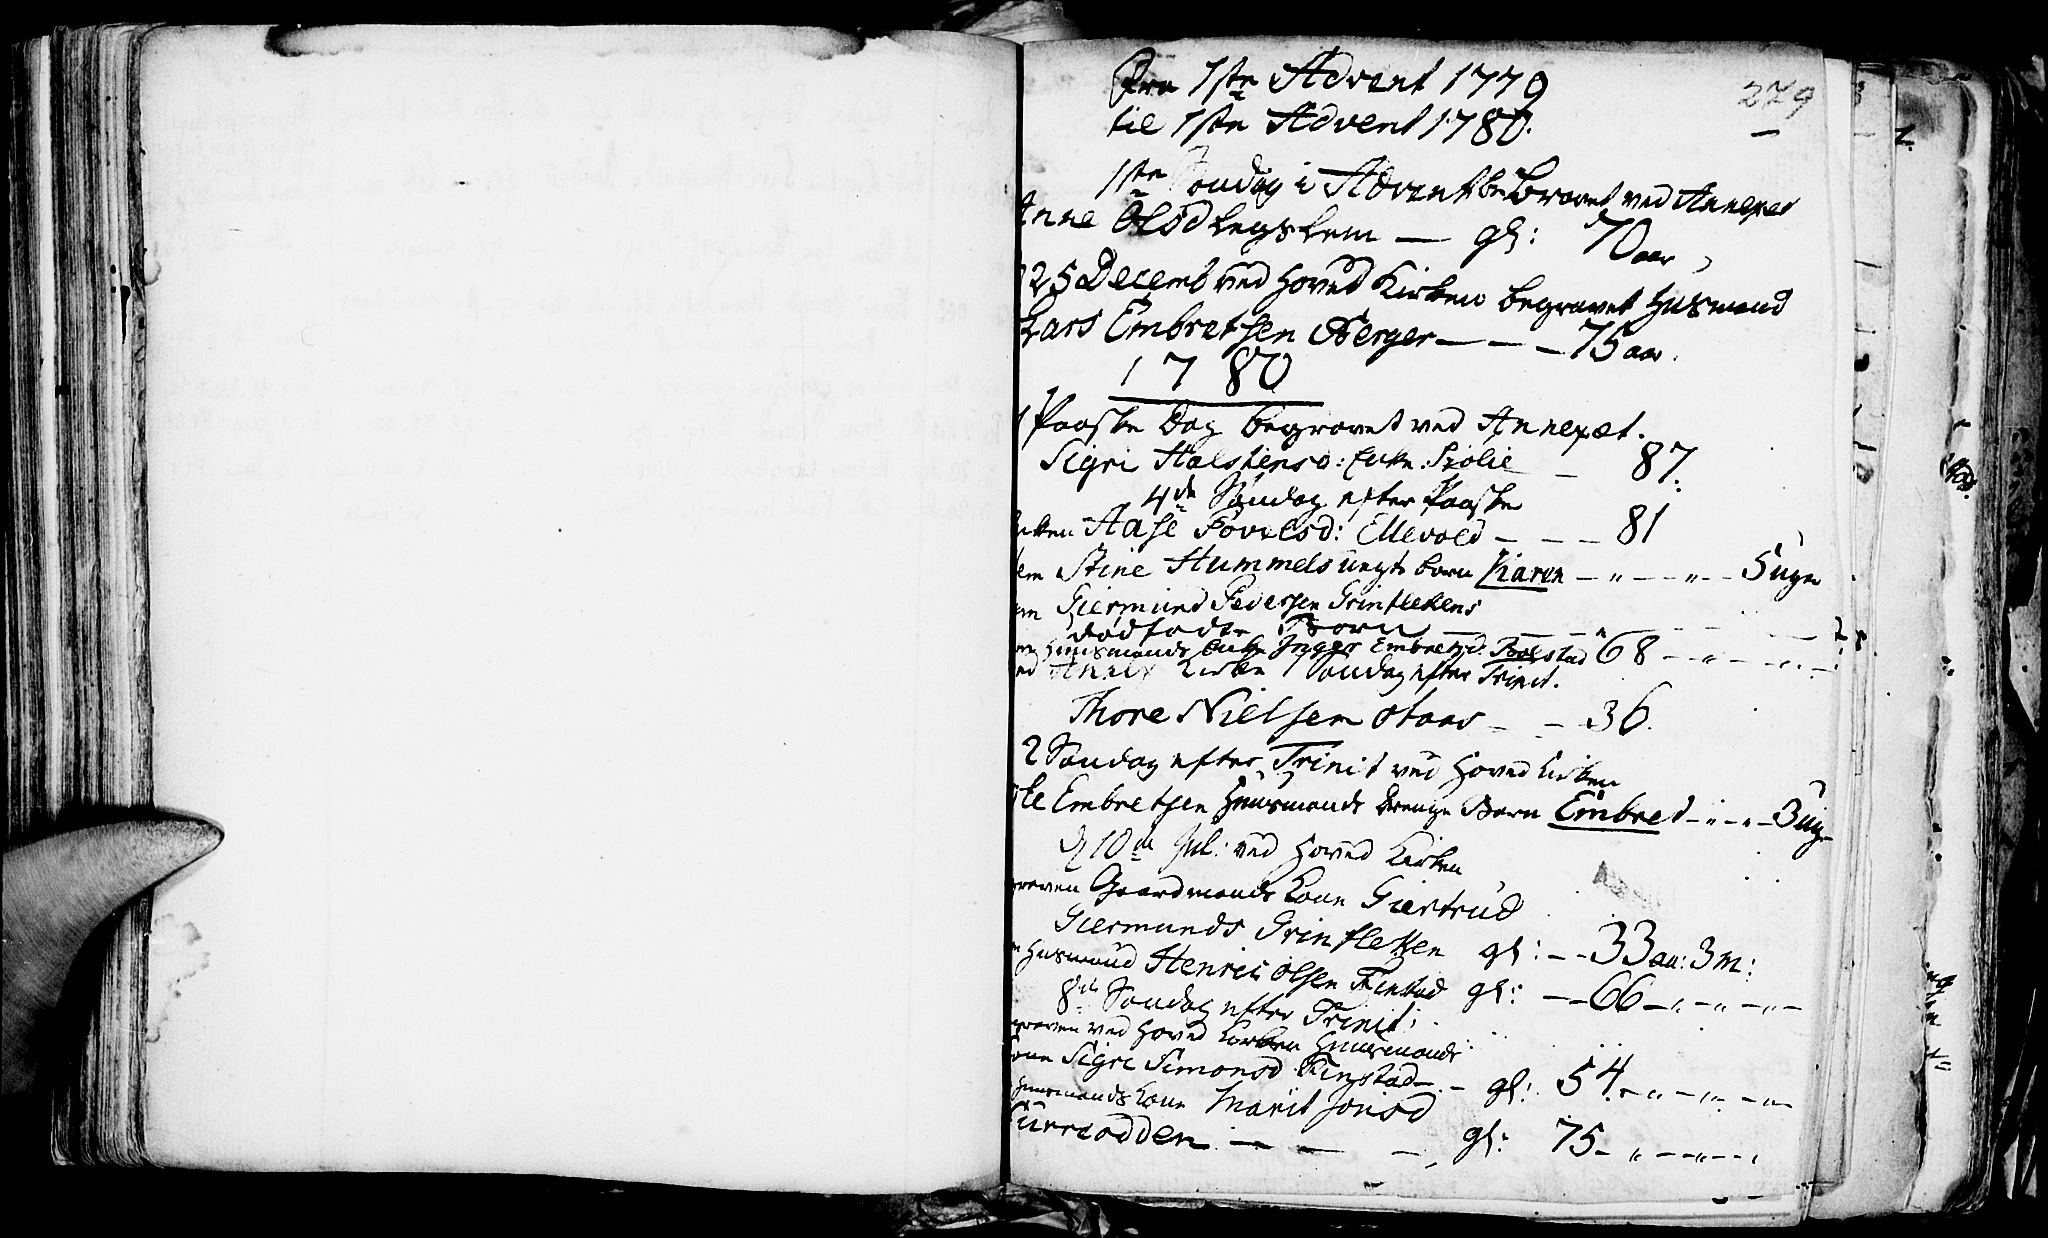 Fra 1ste Advent 1779
til 1ste Advent 1780.
279
1ste Søndag i Advent begravet ved Annexet
Anne Olsd Legslem — gl: 70 aar
25 Decemb ved Hoved Kirken begravet Husmand
Lars Embretsen Berger — — — 75 aar.
1780
1 Paaske Dag begravet ved Annexet.
Sigri Halstensd: Enke: — 87.
4de Søndag efter Paaske
Enken Aase Povelsd: Ellevold — — — 81
Stine Hummels uegte barn Karen — " — " — 5 uger
Giermund Pedersen Grinflekens
dødfødte Barn — — — " — — —
Huusmands Enke Inger Embretsd. Rolstad 68 — " — " —
ved Annex Kirke 1 Søndag efter Trinit.
Thore Nielsen — — 36.
2 Søndag efter Trinit ved Hoved Kirken
Embretsen Huusmands Drenge Barn Embret — " — " — 3 ug
d 10de Jul: ved Hoved Kirken
graven Gaardmands Kone Giertrud
Giermunds Grinflekken gl: — — 33 aar: 3 m:
Husmand Henric Olsen Finstad gl: — — 66 — " — " — " —
8de Søndag efter Trinit:
graven ved Hoved Kirken Huusmands
Kone Sigri Simonsd Finstad — . — gl: 54. — " — " — " —
Huusmands Kone Marit Jonsd
Furrodden — — — gl: 75 — " — " — "